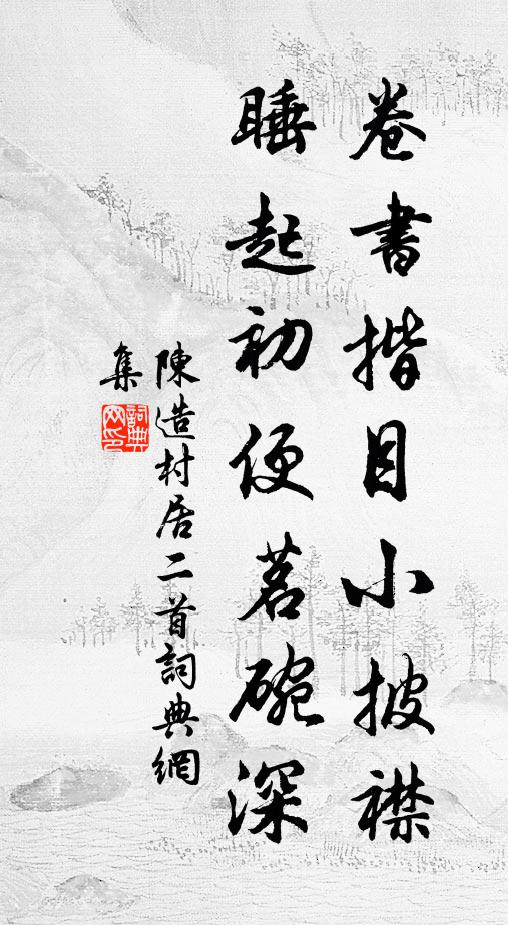 卷書揩目小披襟
睡起初便茗碗深
陳造村居二首詞典網
集
詞典網印